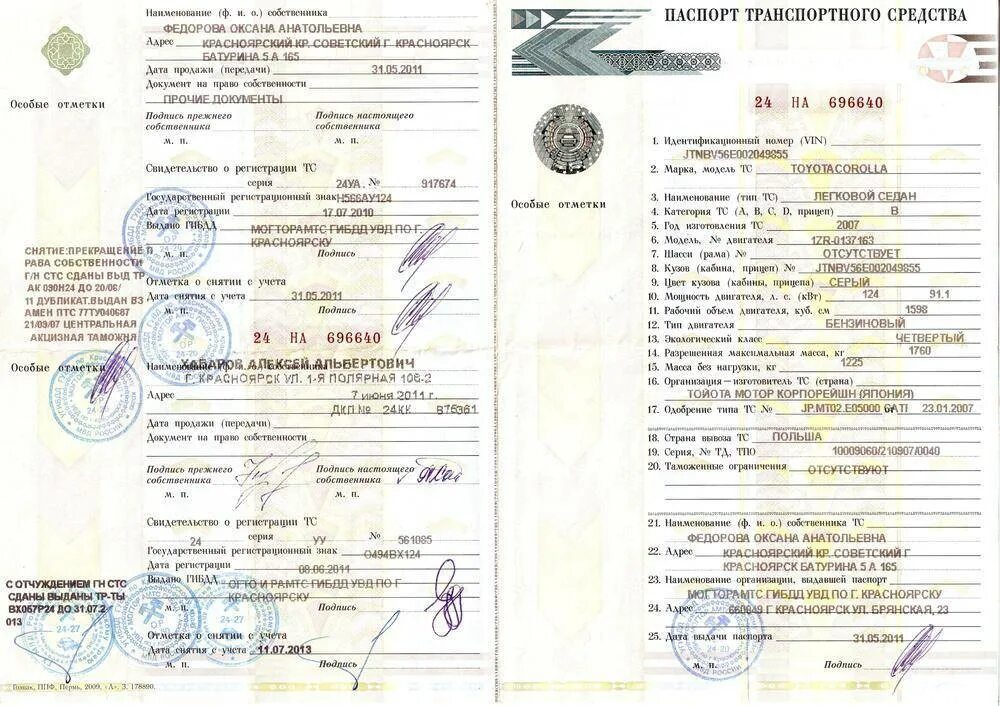 Наименование (ф. и. о.) собственника
ФЕДОРОВА ОКСАНА АНАТОЛЬЕВНА
Адрес КРАСНОЯРСКИЙ КР. СОВЕТСКИЙ Г КРАСНОЯРСК
БАТУРИНА 5 А 165
Дата продажи (передачи) 31.05.2011
Документ на право собственности
ПРОЧИЕ ДОКУМЕНТЫ
Особые отметки
Подпись прежнего собственника
Подпись настоящего собственника
м. п. м. п.
Свидетельство о регистрации ТС
серия 24УА. № 917674
Государственный регистрационный знак Н566АУ124
Дата регистрации 17.07.2010
Выдано ГИБДД МОГТОРАМТС ГИБДД УВД ПО Г.
КРАСНОЯРСКУ
м. п. Подпись
СНЯТИЕ:ПРЕКРАЩЕНИЕ П
РАВА СОБСТВЕННОСТИ
Г/Н СТС СДАНЫ ВЫД ТР
АК 090Н24 ДО 20/06/
11 ДУБЛИКАТ.ВЫДАН ВЗ
АМЕН ПТС 77ТУ040687
21/09/07 ЦЕНТРАЛЬНАЯ
АКЦИЗНАЯ ТАМОЖНЯ
Отметка о снятии с учета
Дата снятия с учета 31.05.2011
м. п. Подпись
24 НА 696640
Особые отметки
Наименование (ф. и. о.) собственника
ХАБАРОВ АЛЕКСЕЙ АЛЬБЕРТОВИЧ
Г. КРАСНОЯРСК УЛ. 1-Я ПОЛЯРНАЯ 106-2
Адрес 7 июня 2011 г.
ДКП № 24КК В75361
Дата продажи (передачи)
Документ на право собственности
Подпись прежнего собственника
Подпись настоящего собственника
м. п. м. п.
Свидетельство о регистрации ТС
24 серия УУ № 561085
Государственный регистрационный знак О494ВХ124
Дата регистрации 08.06.2011
Выдано ГИБДД ОГТО И РАМТС ГИБДД УВД ПО Г
КРАСНОЯРСКУ
м. п. Подпись
С ОТЧУЖДЕНИЕМ ГН СТС
СДАНЫ ВЫДАНЫ ТР-ТЫ
ВХ057Р24 ДО 31.07.2
013
Отметка о снятии с учета
Дата снятия с учета 11.07.2013
м. п. Подпись
Гознак, ППФ, Пермь, 2009, «А», З. 178890.
ПАСПОРТ ТРАНСПОРТНОГО СРЕДСТВА
24 НА 696640
Особые отметки
1. Идентификационный номер (VIN)
JTNBV56E002049855
2. Марка, модель ТС TOYOTACOROLLA
3. Наименование (тип ТС) ЛЕГКОВОЙ СЕДАН
4. Категория ТС (A, B, C, D, прицеп) B
5. Год изготовления ТС 2007
6. Модель, № двигателя 1ZR-0137163
7. Шасси (рама) № ОТСУТСТВУЕТ
8. Кузов (кабина, прицеп) № JTNBV56E002049855
9. Цвет кузова (кабины, прицепа) СЕРЫЙ
10. Мощность двигателя, л. с. (кВт) 124 91.1
11. Рабочий объем двигателя, куб. см 1598
12. Тип двигателя БЕНЗИНОВЫЙ
13. Экологический класс ЧЕТВЕРТЫЙ
14. Разрешенная максимальная масса, кг 1760
15. Масса без нагрузки, кг 1225
16. Организация—изготовитель ТС (страна)
ТОЙОТА МОТОР КОРПОРЕЙШН (ЯПОНИЯ)
17. Одобрение типа ТС № JP.MT02.E05000 от 23.01.2007
18. Страна вывоза ТС ПОЛЬША
19. Серия, № ТД, ТПО 10009060/210907/0040
20. Таможенные ограничения ОТСУТСТВУЮТ
21. Наименование (ф. и. о.) собственника ТС
ФЕДОРОВА ОКСАНА АНАТОЛЬЕВНА
22. Адрес КРАСНОЯРСКИЙ КР. СОВЕТСКИЙ Г
КРАСНОЯРСК БАТУРИНА 5 А 165
23. Наименование организации, выдавшей паспорт
МОГТОРАМТС ГИБДД УВД ПО Г. КРАСНОЯРСКУ
24. Адрес 660049 Г КРАСНОЯРСК УЛ. БРЯНСКАЯ, 23
25. Дата выдачи паспорта 31.05.2011
м. п. Подпись